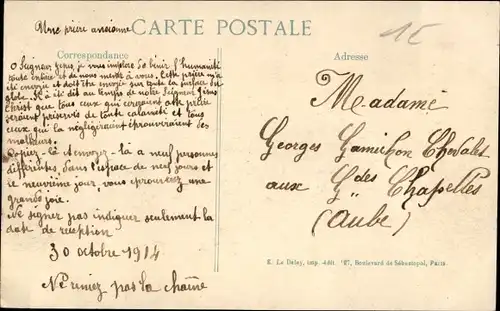 Une prière ancienne
CARTE POSTALE
1E
Correspondance
Adresse
O Seigneur Jésus, je vous implore de bénir l'humanité
toute entière et de nous mener à vous. Cette prière m'a
été envoyée et doit être envoyée sur toute la surface du
globe. Il a été dit au temps de notre Seigneur Jésus
Christ que tous ceux qui
seraient préservés de toute calamité et tous
ceux qui la négligeraient éprouveraient des
malheurs.
Copiez-là et envoyez-là a neuf personnes
différentes, dans l'espace de neuf jours et
le neuvième jour, vous éprouverez une
grande joie.
Ne signer pas indiquer seulement la
date de réception
30 octobre 1914
Ne rompez pas la chaîne
Madame
Georges Chevalet
aux Gdes Chapelles
(Aube)
E. Le Deley, imp.-édit. 127, Boulevard de Sébastopol, Paris.